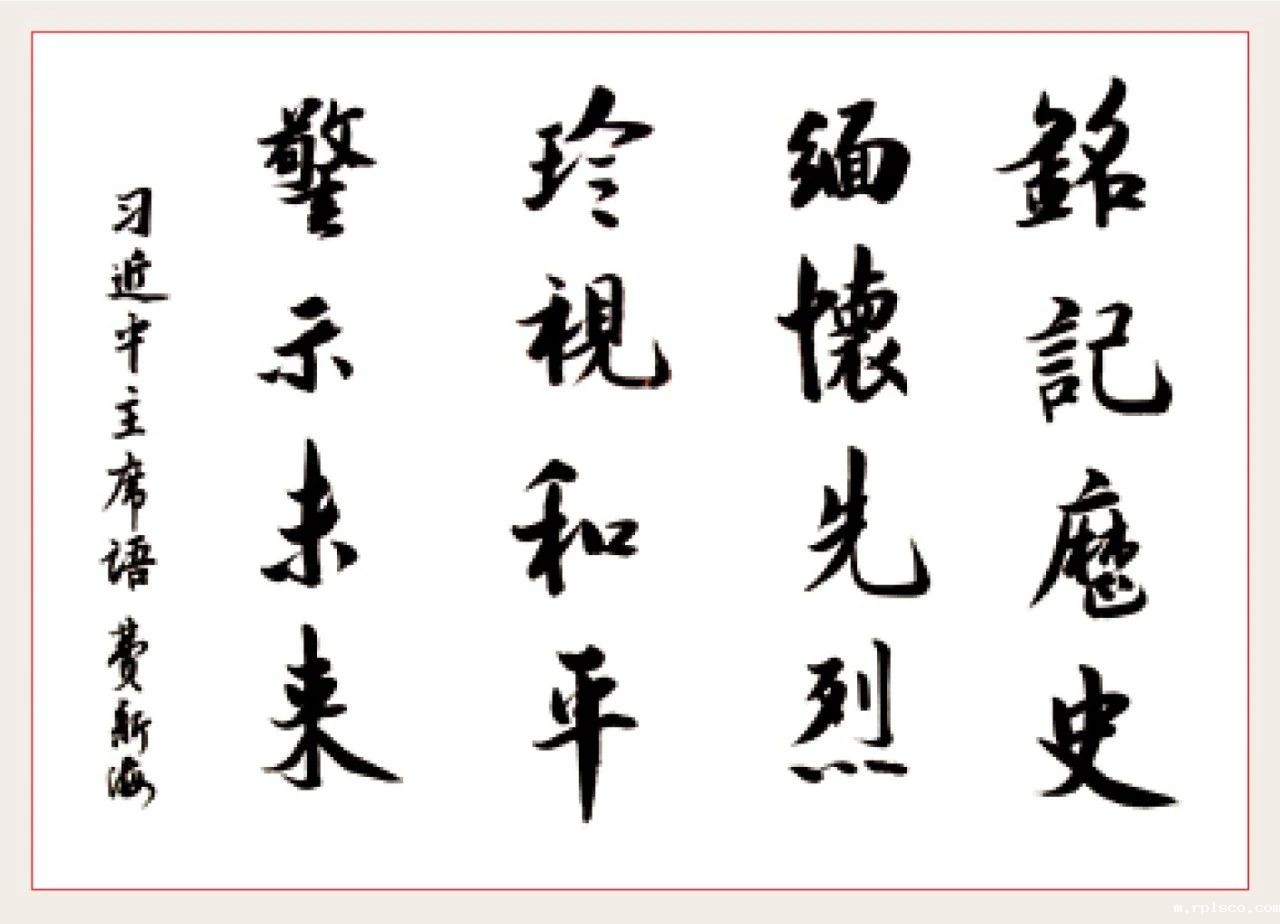 銘記歷史
緬懷先烈
珍視和平
警示未来
习近平主席語 費新海
m.rplsco.com